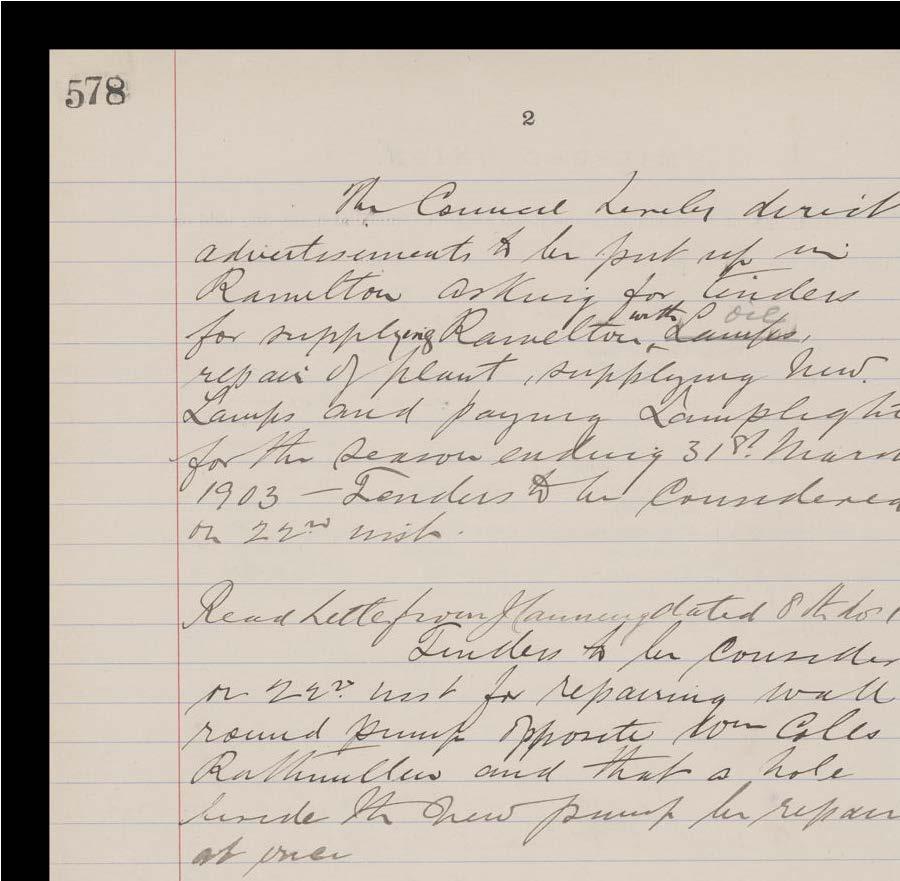 578
2
The Council hereby direct
advertisements to be put up in
Ramelton asking for tenders
for supplying Ramelton with Lamps, oil
repair of plant, supplying New
Lamps and paying Lamplight
for the season ending 31st March
1903 – Tenders to be Considered
on 22nd inst.
Read Letter from J Canning dated 8th
Tenders to be Consider
on 22nd inst for repairing wall
round pump opposite Wm Coles
Rathmullen and that a hole
beside the New pump be repair
at once